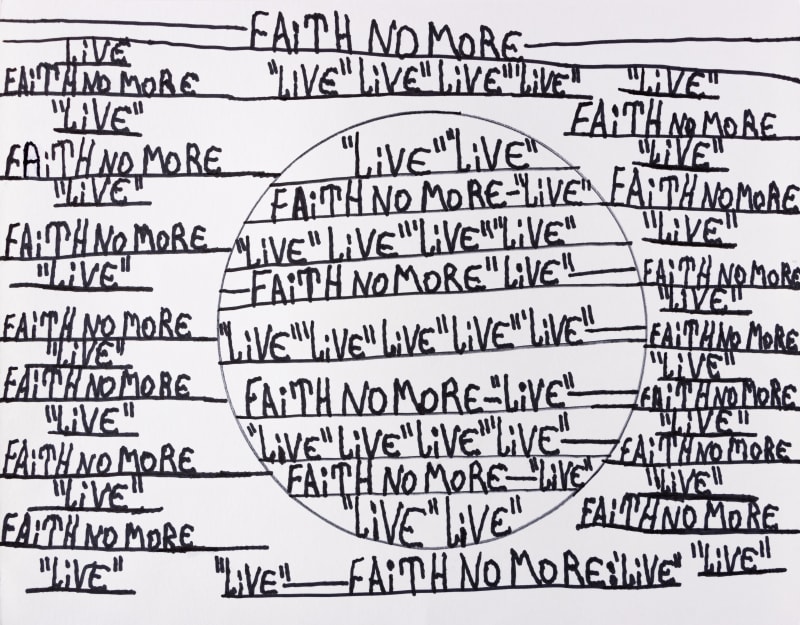 FAiTH NO MORE
LiVE
FAiTH NO MORE
"LiVE"
FAiTH NO MORE
"LiVE"
FAiTH NO MORE
"LiVE"
FAiTH NO MORE
"LiVE"
FAiTH NO MORE
"LiVE"
FAiTH NO MORE
"LiVE"
FAiTH NO MORE
"LiVE"
"LiVE" LiVE" LiVE" "LiVE"
"LiVE" "LiVE"
FAiTH NO MORE-"LiVE"
"LiVE" LiVE" "LiVE" "LiVE"
FAiTH NO MORE "LiVE"
"LiVE" "LiVE" LiVE" LiVE" "LiVE"
FAiTH NO MORE-"LiVE"
"LiVE" LiVE" LiVE" "LiVE"
FAiTH NO MORE-"LiVE"
"LiVE" LiVE"
"LiVE"—FAiTH NO MORE:"LiVE"
"LiVE"
FAiTH NO MORE
"LiVE"
FAiTH NO MORE
"LiVE"
FAiTH NO MORE
"LiVE"
FAiTH NO MORE
"LiVE"
FAiTH NO MORE
"LiVE"
FAiTH NO MORE
"LiVE"
FAiTH NO MORE
"LiVE"